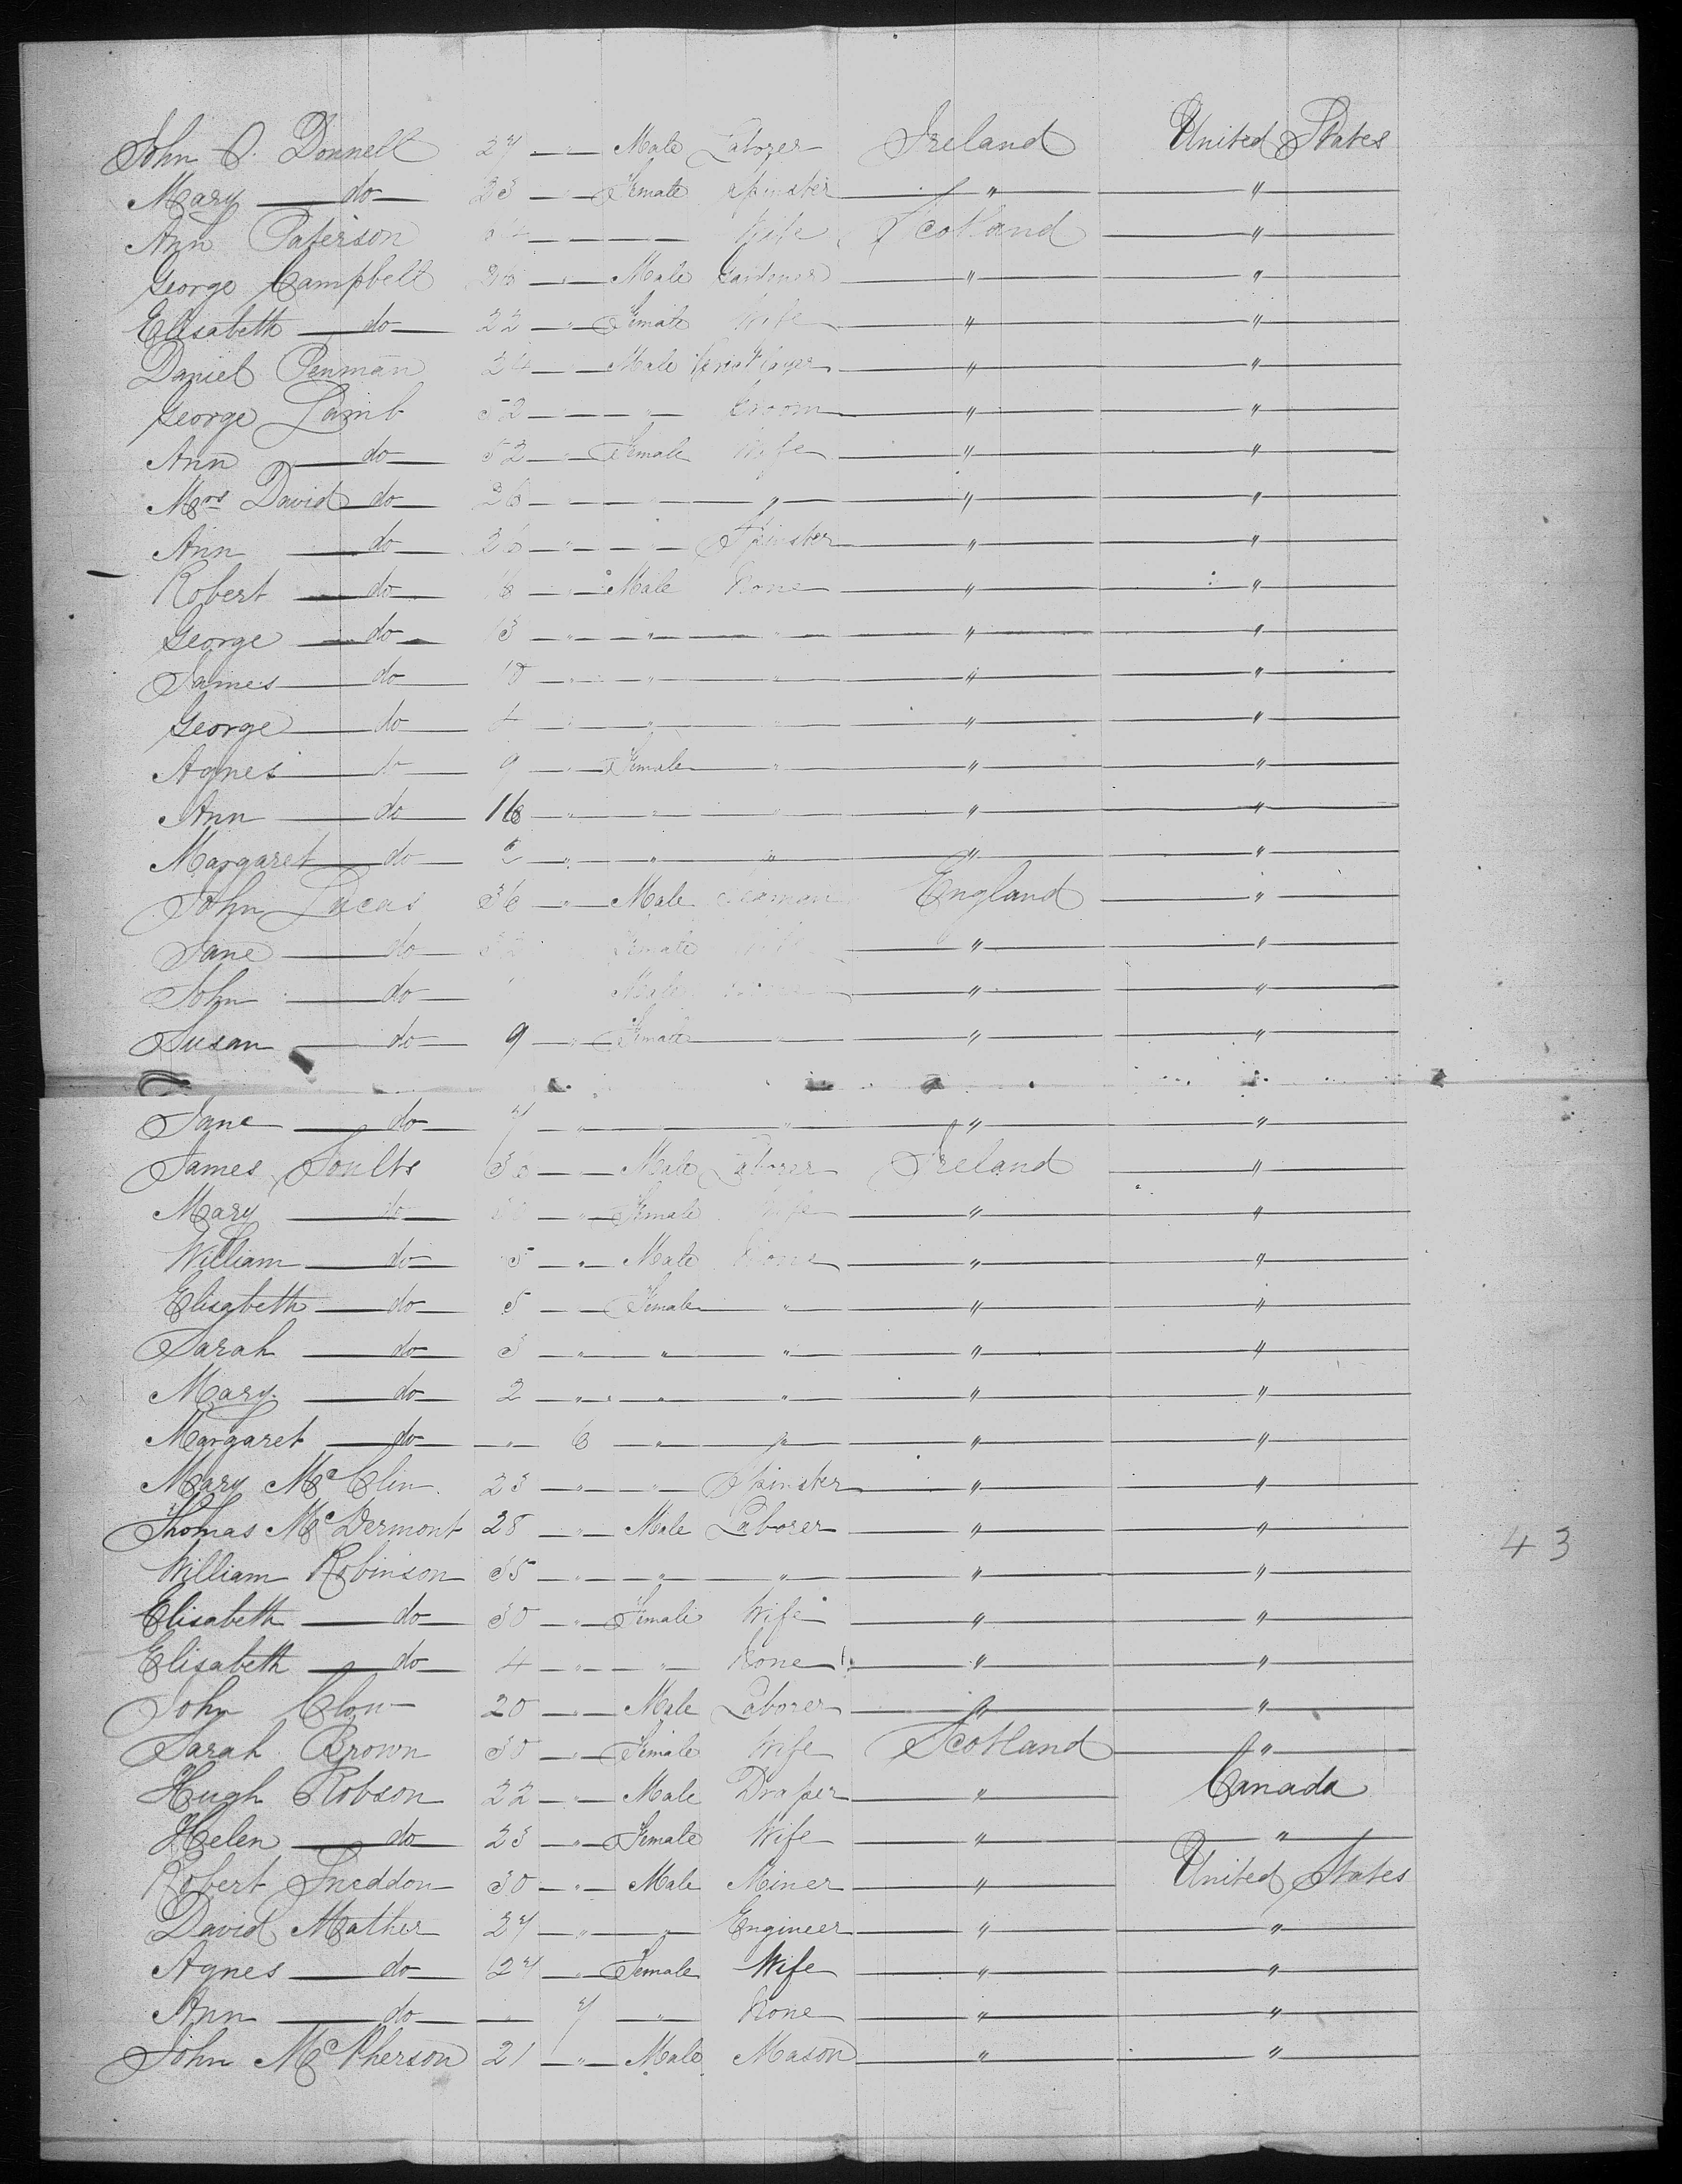 John O. Donnell 27 " Male Laborer Ireland United States
Mary do 23 " Female Spinster " "
Ann Paterson 64 " " Wife Scotland "
George Campbell " Male Gardener " "
Elisabeth do 22 " Female Wife " "
Daniel Penman 24 " Male " "
George Lamb 52 " " Groom " "
Ann do 52 " Female Wife " "
Mrs David do 26 " " " " "
Ann do 26 " " Spinster " "
Robert do " Male None " "
George do 13 " " " " "
James do 10 " " " " "
George do 4 " " " " "
Agnes do 9 " Female " " "
Ann do 16 " " " " "
Margaret do " " " " "
John Lucas 36 " Male England "
Jane do Female Wife " "
John do Male " "
Susan do 9 " Female " " "
Jane do 7 " " " "
James Soults 30 " Male Laborer Ireland "
Mary do " Female Wife " "
William do 5 " Male None " "
Elisabeth do 5 " Female " " "
Sarah do 3 " " " " "
Mary do 2 " " " " "
Margaret do " 6 " " " "
Mary McClin 23 " " Spinster " "
Thomas McDermont 28 " Male Laborer " "
43
William Robinson 35 " " " " "
Elisabeth do 30 " Female Wife " "
Elisabeth do 4 " " None " "
John Clow 20 " Male Laborer " "
Sarah Brown 30 " Female Wife Scotland "
Hugh Robson 22 " Male Draper " Canada
Helen do 23 " Female Wife " "
Robert Sneddon 30 " Male Miner " United States
David Mather 27 " " Engineer " "
Agnes do 27 " Female Wife " "
Ann do " 7 " None " "
John McPherson 21 " Male Mason " "